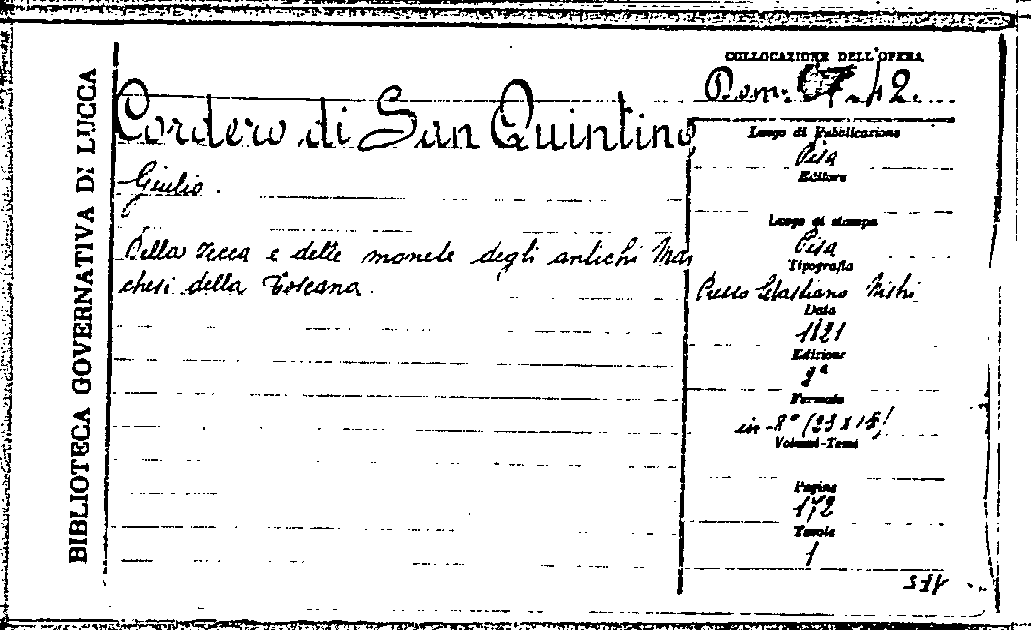 BIBLIOTECA GOVERNATIVA DI LUCCA
COLLOCAZIONE DELL'OPERA
Dom. 42.
Cordero di San Quintino
Giulio.
Della zecca e delle monete degli antichi Mar
chesi della Toscana.
Luogo di Pubblicazione
Pisa
Editore
Luogo di stampa
Pisa
Tipografia
Presso Sebastiano Nistri
Data
1821
Edizione
2ª
Formato
in-8° (23x15)
Volumi-Tomi
Pagine
172
Tavole
1